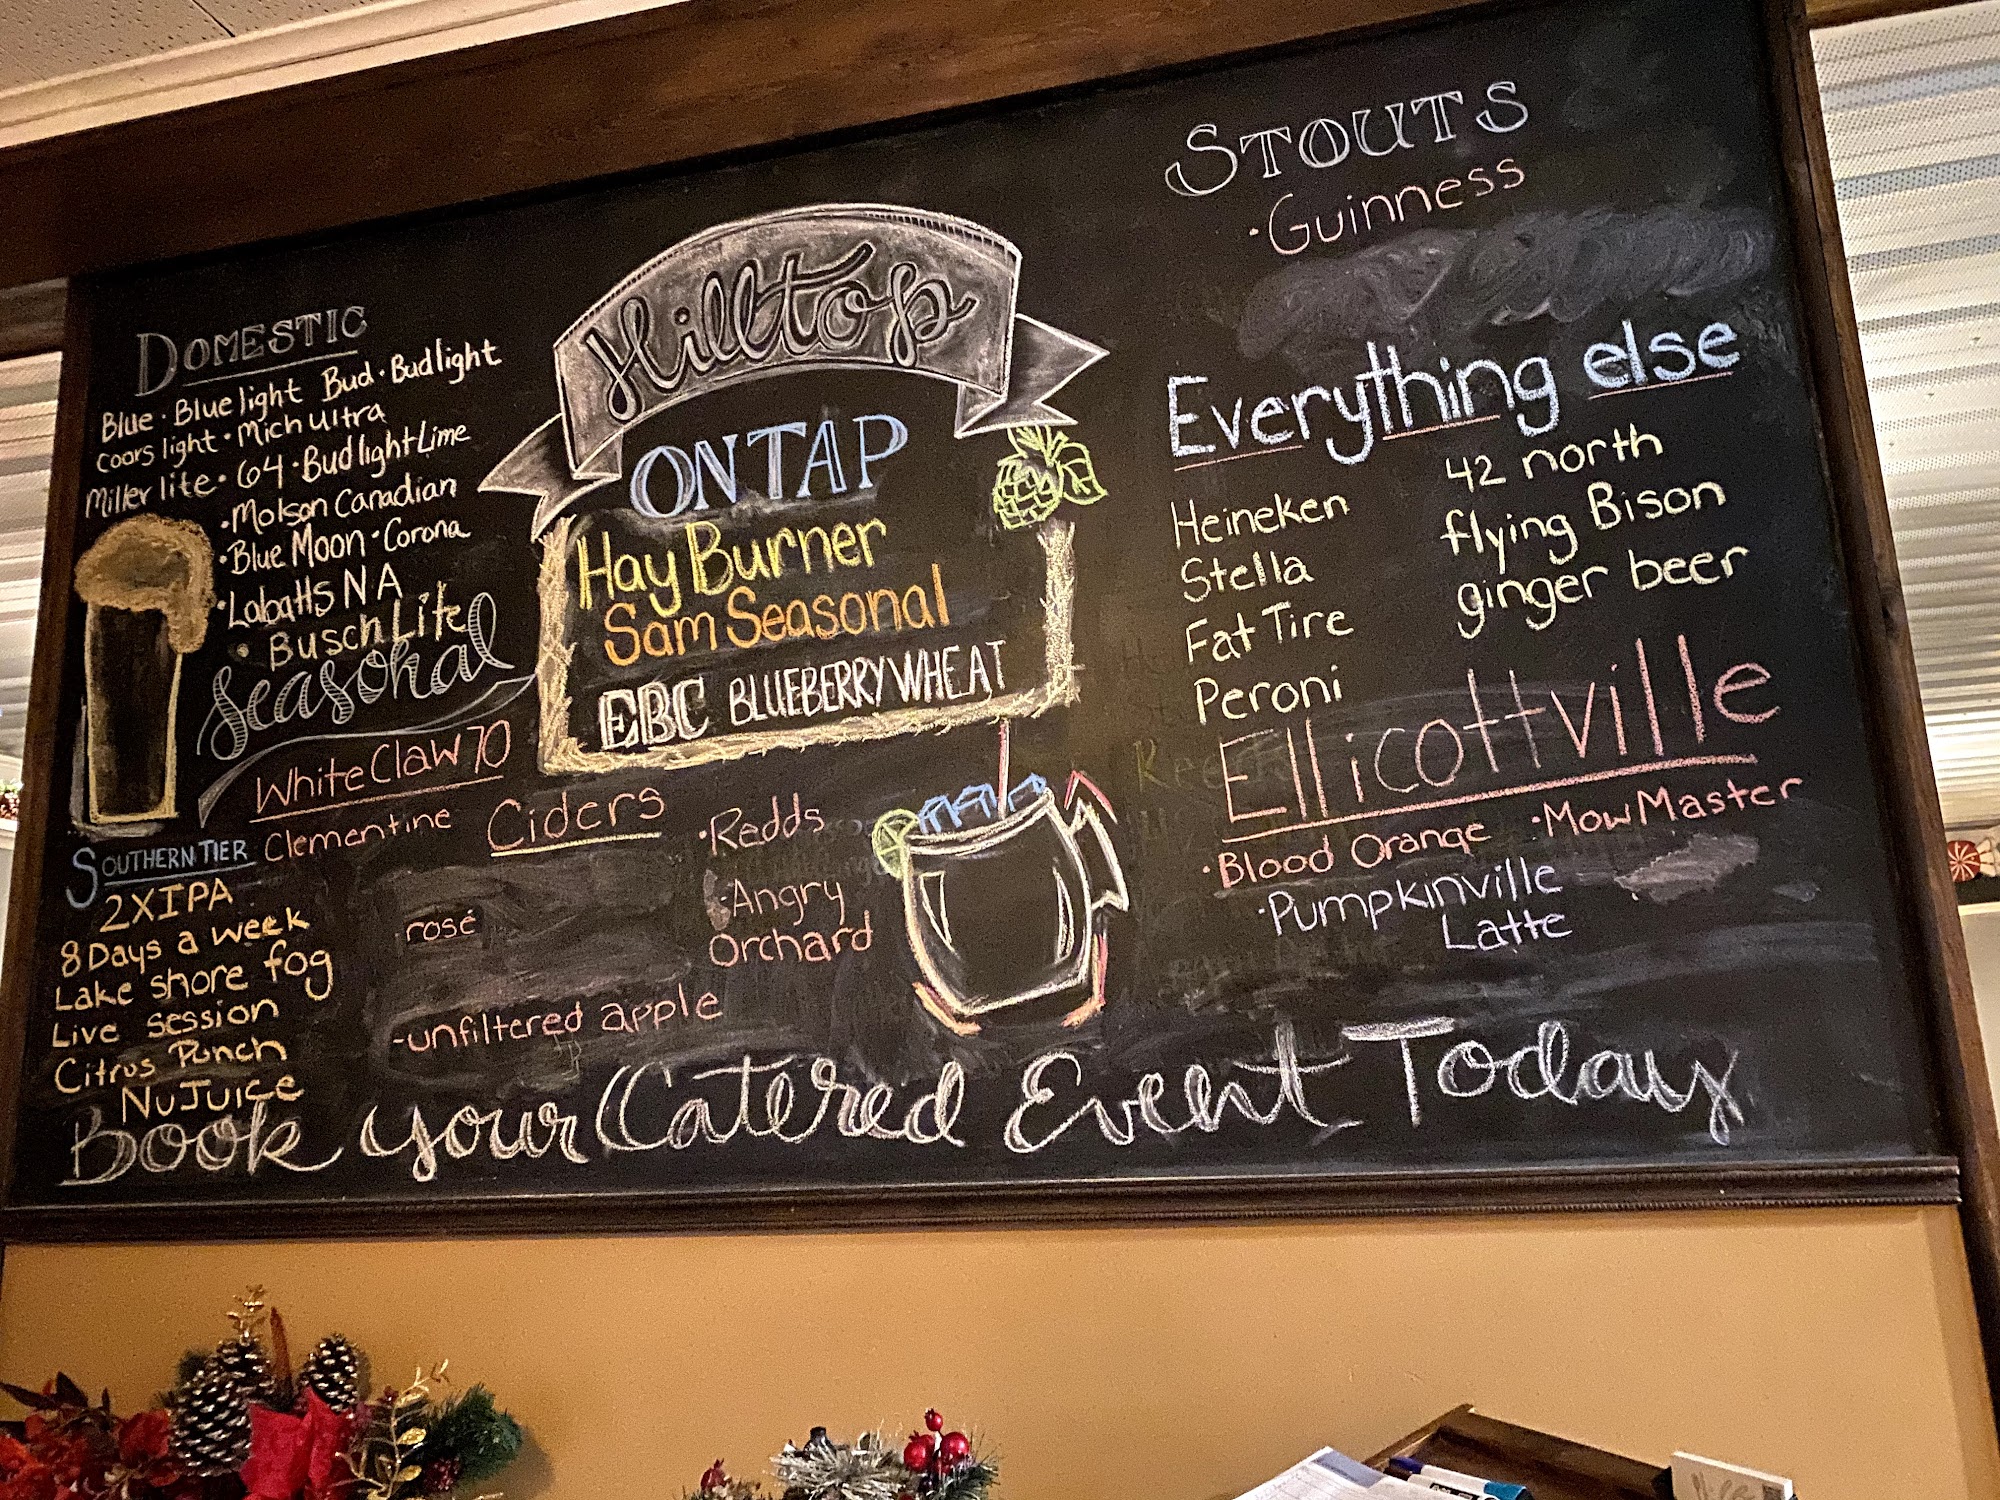 Hilltop
ON TAP
Hay Burner
Sam Seasonal
EBC BLUEBERRY WHEAT
DOMESTIC
Blue · Blue light Bud · Bud light
Coors light · Mich ultra
Miller lite · 64 · Bud light Lime
· Molson Canadian
· Blue Moon · Corona
· Labatts NA
· Busch Lite
Seasonal
White Claw 70
Clementine
SOUTHERN TIER
2XIPA
8 Days a week
Lake shore fog
Live Session
Citrus Punch
NuJuice
Ciders
· Redds
· Angry
Orchard
· rosé
- unfiltered apple
STOUTS
· Guinness
Everything else
Heineken
Stella
Fat Tire
Peroni
42 north
flying Bison
ginger beer
Ellicottville
· Blood Orange · Mow Master
· Pumpkinville
Latte
Book your Catered Event Today